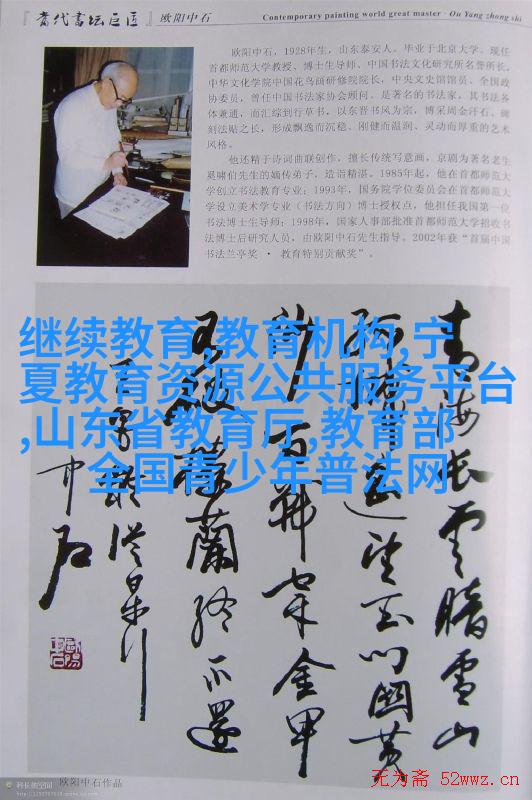 『當代書坛巨匠』欧阳中石
Contemporary painting world great master · Ou Yang zhong shi
欧阳中石，1928年生，山东泰安人。毕业于北京大学。现任
首都师范大学教授、博士生导师、中国书法文化研究所名誉所长，
中华文化学院中国花鸟画研修院院长，中央文史馆馆员、全国政
协委员，曾任中国书法家协会顾问。是著名的书法家，其书法各
体兼通，而汇综到行草书，以东晋书风为宗，博采周金汗石、碑
刻法贴之长，形成飘逸而沉稳、刚健而温润、灵动而厚重的艺术
风格。
他还精于诗词曲联创作，擅长传统写意画，京剧为著名老生
奚啸伯先生的嫡传弟子，造诣精湛。1985年起，他在首都师范大
学创立书法教育专业；1993年，国务院学位委员会在首都师范大
学设立美术学专业（书法方向）博士授权点，他担任我国第一位
书法博士生导师；1998年，国家人事部批准首都师范大学招收书
法博士后研究人员，由欧阳中石先生指导。2002年获“首届中国
书法兰亭奖 · 教育特别贡献奖”。
继续教育,教育机构,宁
夏教育资源公共服务平台
,山东省教育厅,教育部
全国青少年普法网
青海长云暗雪山
孤城遥望玉门关黄
沙百战穿金甲
不破楼兰终不还
中石
欧阳中石作品
无为斋 52wwz.cn